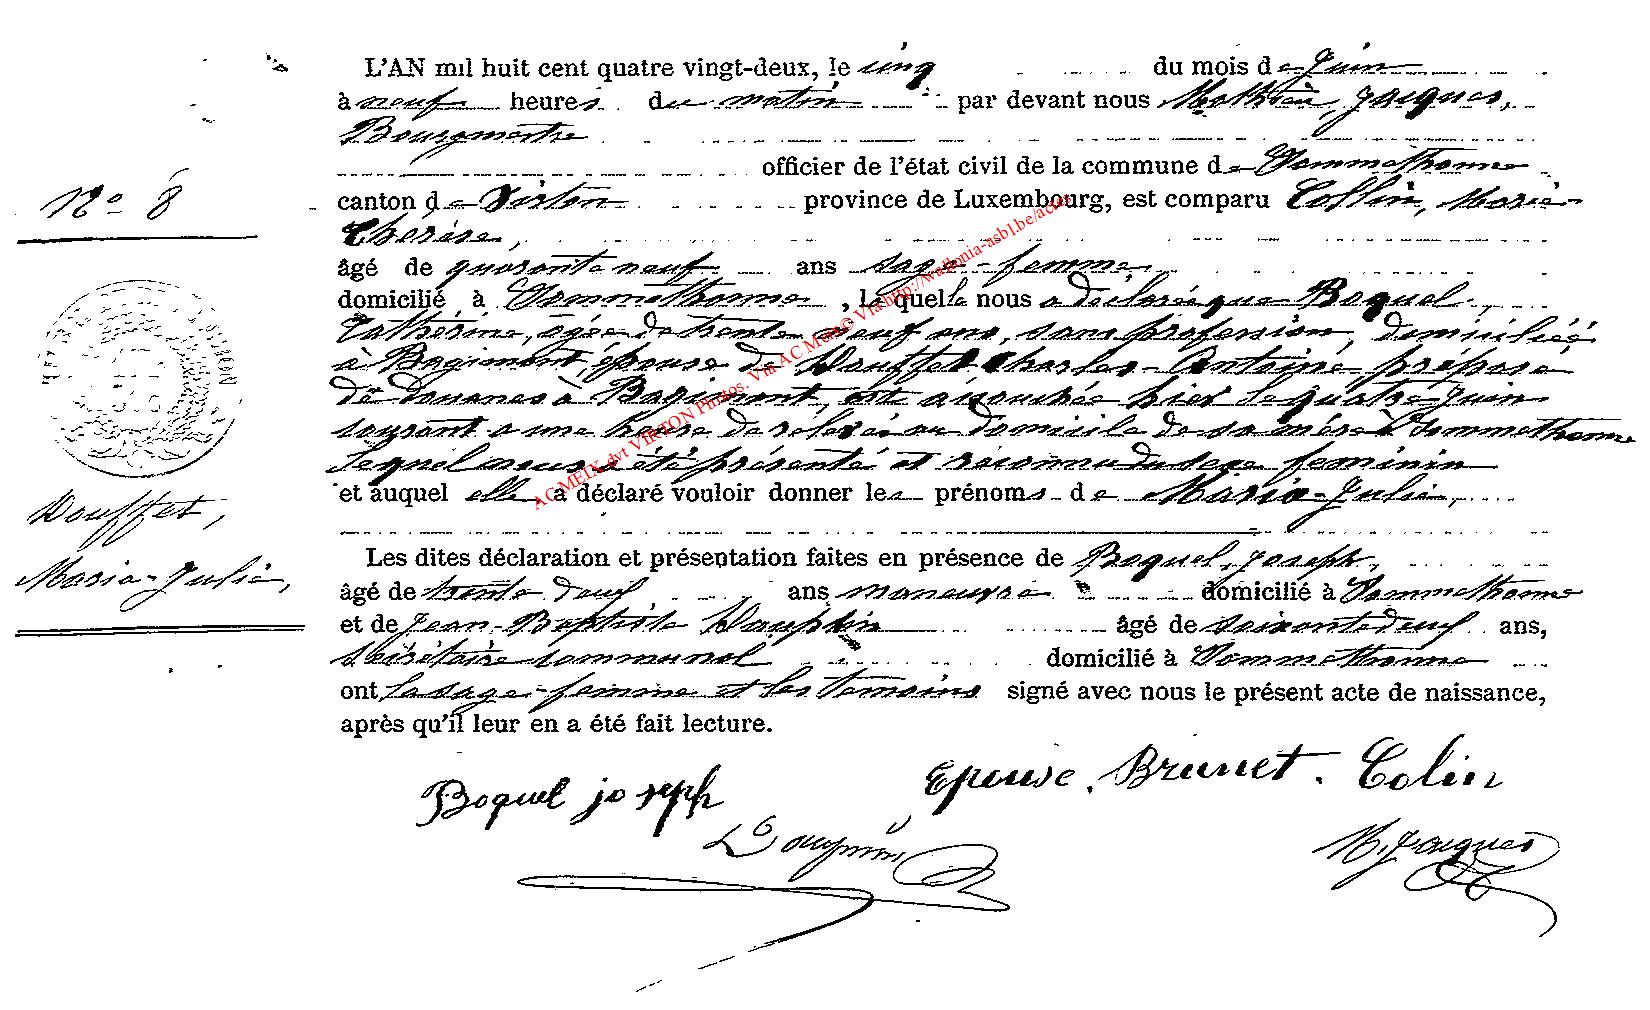 L'AN mil huit cent quatre vingt-deux, le cinq du mois de Juin
à neuf heures du matin par devant nous Mathieu, Jacques,
Bourgmestre
officier de l'état civil de la commune de Sommethonne
N° 8
canton de Virton province de Luxembourg, est comparu Collin, Marie
Thérèse,
âgé de quarante neuf ans sage-femme
domicilié à Sommethonne, laquelle nous a déclaré que Boquel
Cathérine, âgée de trente neuf ans, sans profession, domiciliée
à Bagimont, épouse de Douffet Charles-Antoine, préposé
de douanes à Bagimont, est accouchée hier le quatre Juin
courant a une heure de relevée au domicile de sa mère à Sommethonne
lequel nous a été présenté et reconnu du sexe feminin
et auquel elle a déclaré vouloir donner les prénoms de Maria-Julie,
Douffet,
Maria-Julie,
Les dites déclaration et présentation faites en présence de Boquel, Joseph,
âgé de trente deux ans manœuvre domicilié à Sommethonne
et de Jean-Baptiste Dauphin âgé de soixante deux ans,
secrétaire communal domicilié à Sommethonne
ont la sage-femme et les témoins signé avec nous le présent acte de naissance,
après qu'il leur en a été fait lecture.
Epouse. Brunet. Colin
Boquel joseph
Dauphin
M. Jacques
AC MEIX dvt VIRTON Photos. Via AC MdAC Via http://wallonia-asbl.be/actes